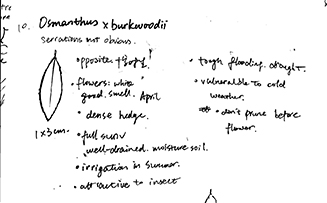 10. Osmanthus x burkwoodii
serrations not obvious.
• opposite
• flowers: white
good. smell. April
• dense hedge.
1 x 3 cm.
• full sun
well-drained. moisture soil.
• irrigation in summer.
• attractive to insect
• tough flooding. drought.
• vulnerable to cold
weather.
• don't prune before
flower.